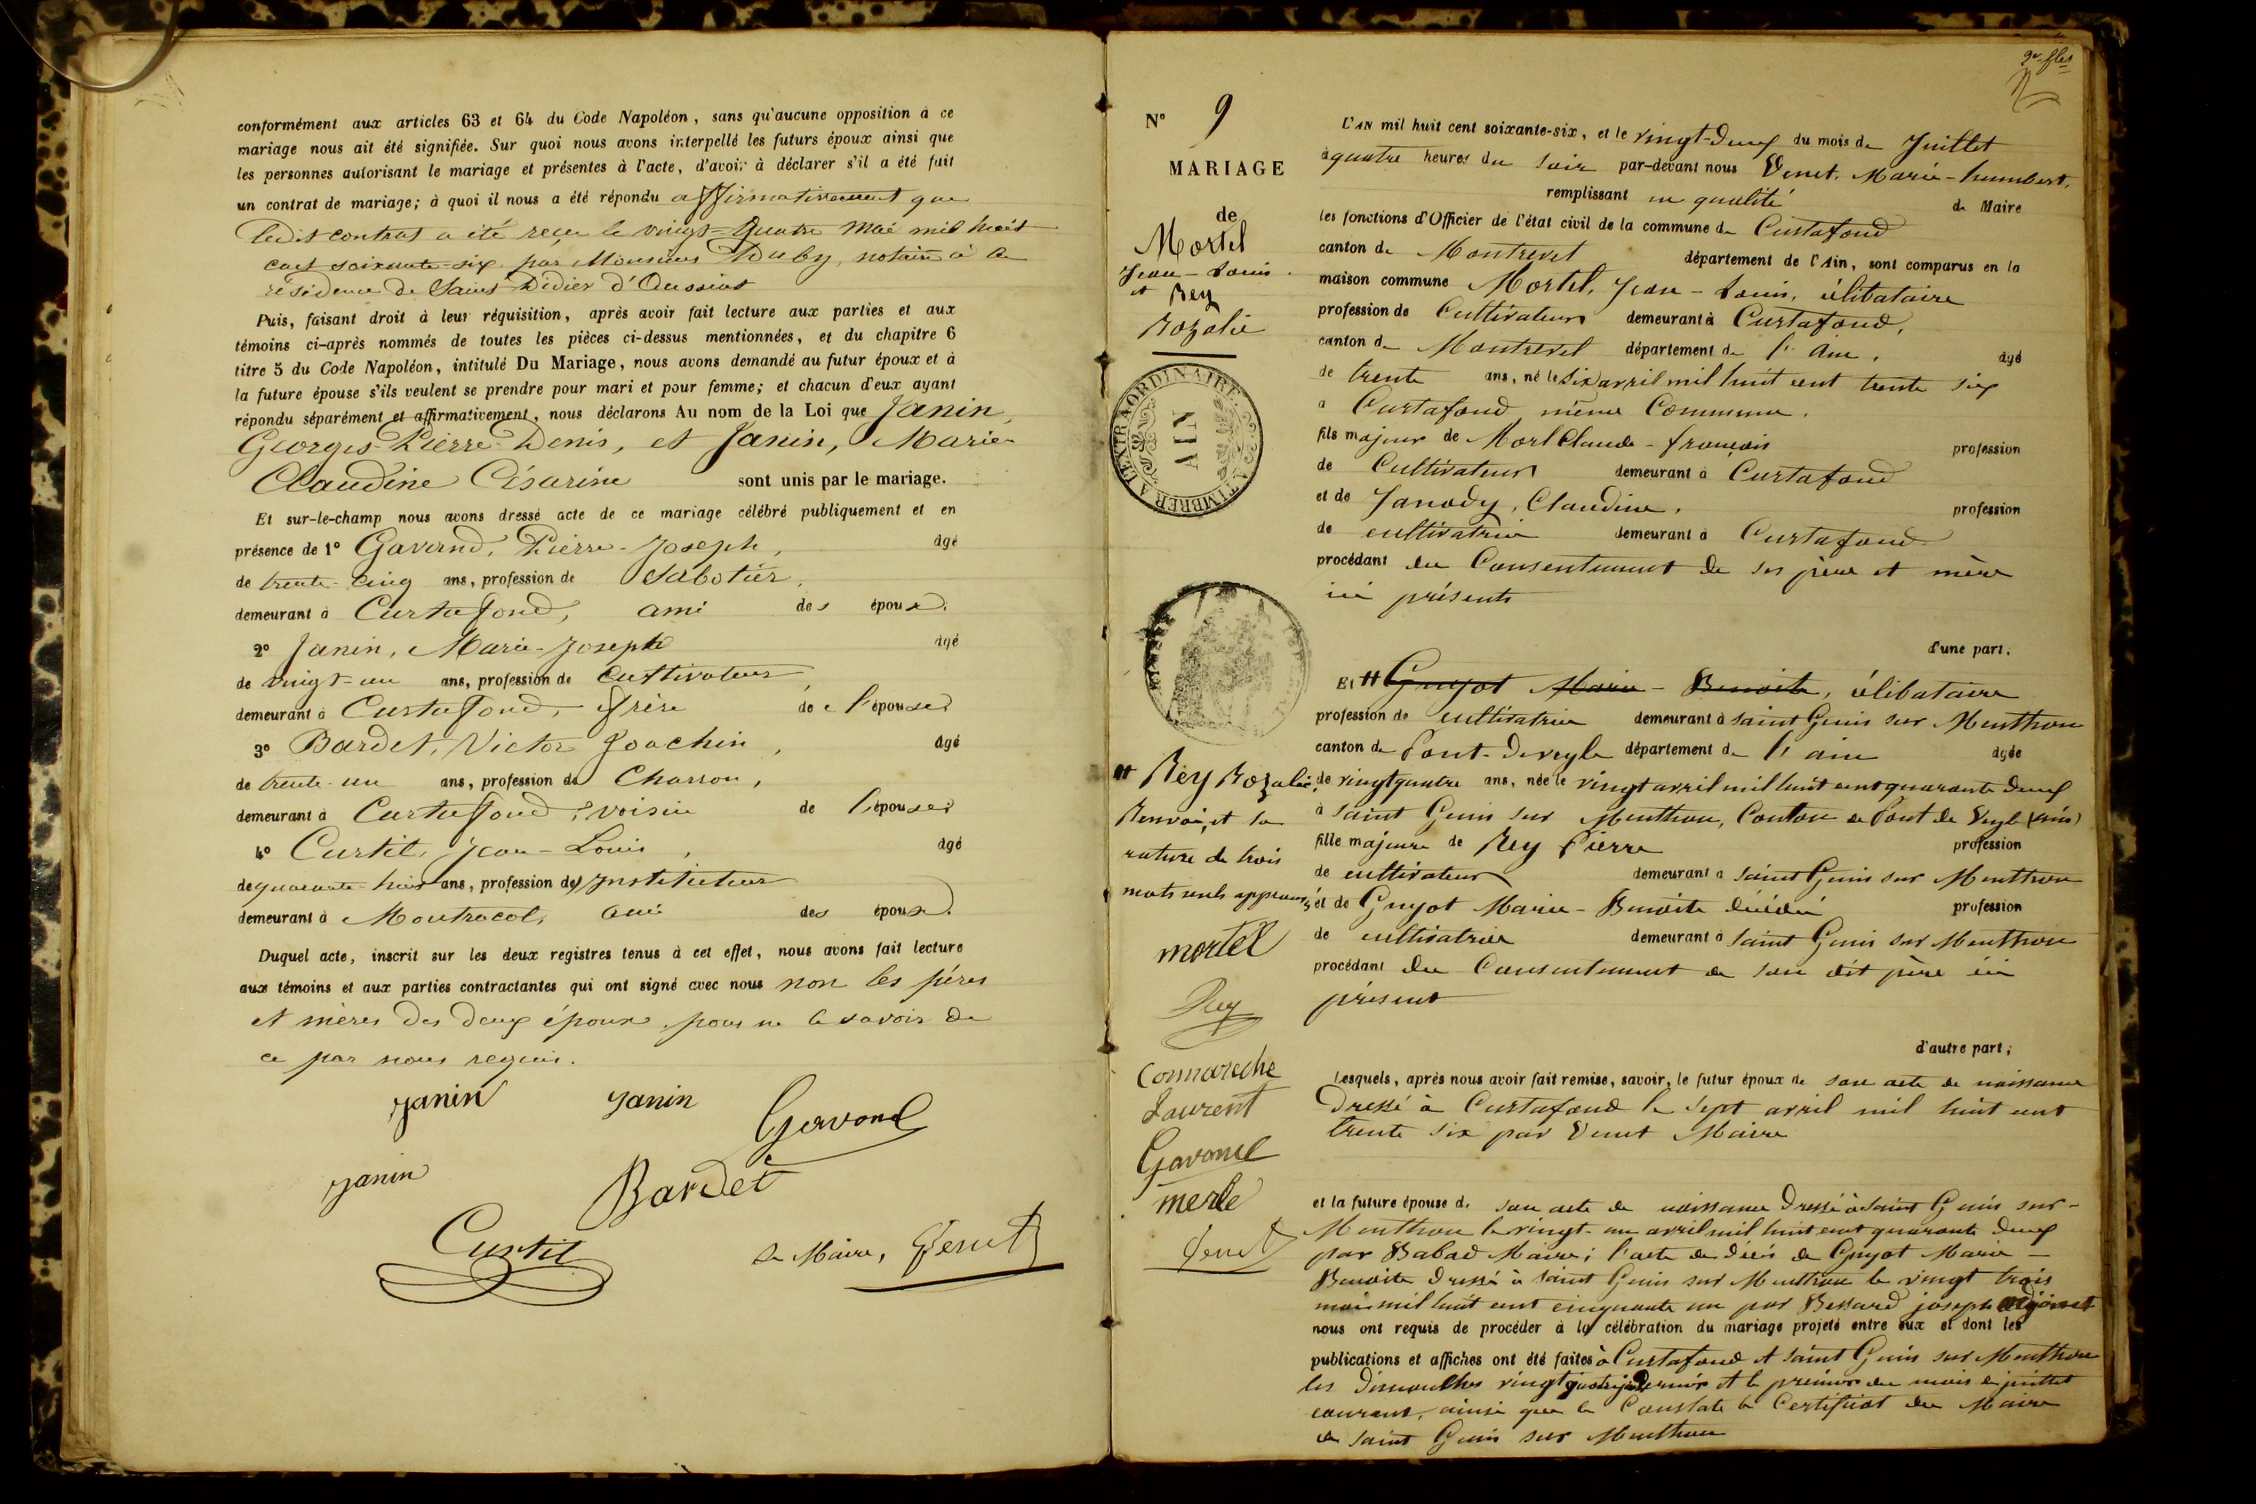 conformément aux articles 63 et 64 du Code Napoléon, sans qu'aucune opposition à ce
mariage nous ait été signifiée. Sur quoi nous avons interpellé les futurs époux ainsi que
les personnes autorisant le mariage et présentes à l'acte, d'avoir à déclarer s'il a été fait
un contrat de mariage; à quoi il nous a été répondu affirmativement que
ledit contrat a été reçu le vingt-quatre Mai mil huit
cent soixante-six par Monsieur Duby, notaire à la
résidence de Saint Didier d'Oussiat
Puis, faisant droit à leur réquisition, après avoir fait lecture aux parties et aux
témoins ci-après nommés de toutes les pièces ci-dessus mentionnées, et du chapitre 6
titre 5 du Code Napoléon, intitulé Du Mariage, nous avons demandé au futur époux et à
la future épouse s'ils veulent se prendre pour mari et pour femme; et chacun d'eux ayant
répondu séparément et affirmativement, nous déclarons Au nom de la Loi que Janin,
Georges-Pierre-Denis, et Janin, Marie-
Claudine Césarine sont unis par le mariage.
Et sur-le-champ nous avons dressé acte de ce mariage célébré publiquement et en
présence de 1° Gavand, Pierre-Joseph, âgé
de trente-cinq ans, profession de Sabotier,
demeurant à Curtafond, ami des époux.
2° Janin, Marie-Joseph âgé
de vingt-un ans, profession de Cultivateur,
demeurant à Curtafond, frère de l'épouse
3° Bardet, Victor Joachin, âgé
de trente-un ans, profession de Charron,
demeurant à Curtafond, voisin de l'épouse
4° Curtil, Jean-Louis, âgé
de quarante-trois ans, profession d' Instituteur
demeurant à Montracol, ami des époux.
Duquel acte, inscrit sur les deux registres tenus à cet effet, nous avons fait lecture
aux témoins et aux parties contractantes qui ont signé avec nous non les pères
et mères des deux époux pour ne le savoir de
ce par nous requis.
Janin Janin Gavand
Janin Bardet
Curtil Le Maire, Venet
N° 9
MARIAGE
de
Mortel
Jean-Louis
et Rey
Rozalie
A L'EXTRAORDINAIRE
AIN
A TIMBRER
# Rey Rozalie,
Renvoi, et la
rature de trois
mots nuls approuvés
mortel
Rey
Connareche
Laurent
Gavand
merle
Venet
L'AN mil huit cent soixante-six, et le vingt-deux du mois de Juillet
à quatre heures du soir par-devant nous Venet, Marie-humbert,
remplissant en qualité de Maire
les fonctions d'Officier de l'état civil de la commune de Curtafond
canton de Montrevel département de l'Ain, sont comparus en la
maison commune Mortel, Jean-Louis, célibataire
profession de Cultivateur demeurant à Curtafond,
canton de Montrevel département de l'Ain, âgé
de trente ans, né le six avril mil huit cent trente six
à Curtafond même Commune,
fils majeur de Mortel Claude-françois profession
de Cultivateur demeurant à Curtafond
et de Janody, Claudine, profession
de cultivatrice demeurant à Curtafond
procédant du Consentement de ses père et mère
ici présents
d'une part,
Et # Guyot Marie-Benoite, célibataire
profession de cultivatrice demeurant à saint Genis sur Menthon
canton de Pont-de-veyle département de l'ain âgée
de vingtquatre ans, née le vingt avril mil huit cent quarante deux
à saint Genis sur Menthon, Canton de Pont de Veyle (ain)
fille majeure de Rey Pierre profession
de cultivateur demeurant à saint Genis sur Menthon
et de Guyot Marie-Benoite décédée profession
de cultivatrice demeurant à saint Genis sur Menthon
procédant du Consentement de son dit père ici
présent
d'autre part;
Lesquels, après nous avoir fait remise, savoir, le futur époux de son acte de naissance
Dressé à Curtafond le sept avril mil huit cent
trente six par Venet Maire
et la future épouse de son acte de naissance Dressé à saint Genis sur-
Menthon le vingt-un avril mil huit cent quarante deux
par Babad Maire; l'acte de décès de Guyot Marie-
Benoite dressé à saint Genis sur Menthon le vingt trois
mai mil huit cent cinquante un par Bessard joseph adjoint
nous ont requis de procéder à la célébration du mariage projeté entre eux et dont les
publications et affiches ont été faites à Curtafond et saint Genis sur Menthon
les dimanches vingt quatre juin dernier et le premier du mois de juillet
courant, ainsi que le Constate le Certificat du Maire
de saint Genis sur Menthon